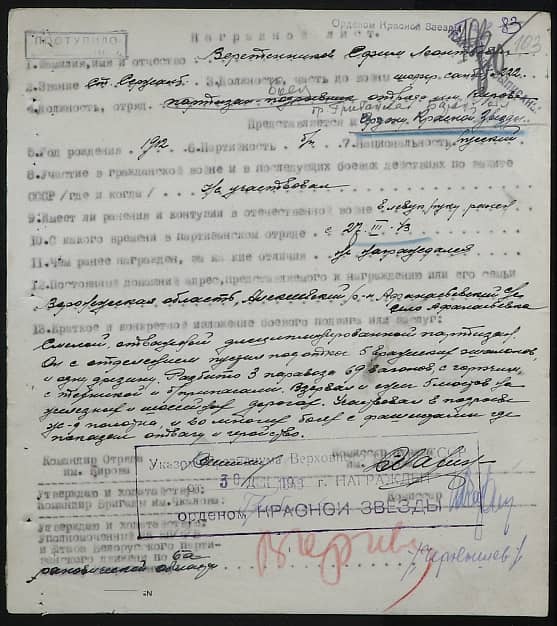 Орденом Красной Звезды
83
103
ПОСТУПИЛО
Наградной лист.
1. Фамилия, имя и отчество Веретенников Ефим Леонтьевич
2. Звание Ст. Сержант. 3. Должность, часть до войны шофер санб.
4. Должность, отряд. партизан-подрывник отряда им. Кирова
боец
Представляется к Ордену Красной Звезды.
5. Год рождения 1912 6. Партийность б/п 7. Национальность русский
8. Участие в гражданской войне и в последующих боевых действиях по защите
СССР /где и когда/ Не участвовал
9. Имеет ли ранения и контузии в отечественной войне в левую руку ранен
10. С какого времени в Партизанском отряде с 27-III-43
11. Чем ранее награжден, за какие отличия Не награждался
12. Постоянный домашний адрес, представляемого к награждению или его семьи
Воронежская область, Алексеевский р-н Афанасьевский с/с
село Афанасьевка
13. Краткое и конкретное изложение боевого подвига или заслуг:
Смелый, отважный дисциплинированный партизан.
Он с отделением пустил под откос 5 вражеских эшелонов,
и одну дрезину. Разбито 3 паровоза 69 вагонов, с горючим,
с техникой и боеприпасами. Взорвал и сжег 6 мостов на
железных и шоссейных дорогах. Участвовал в подрыве
ж-д полотна, и 20 многих боях с фашистами где
показал отвагу и геройство.
Командир Отряда
им. Кирова
Комиссар
им.
Указом Президиума Верховного Совета СССР
от 30 дек 194 г. НАГРАЖДЕН
орденом КРАСНОЙ ЗВЕЗДЫ
Утверждаю и ходатайствую:
Командир Бригады им. Чкалова:
Комиссар
Утверждаю и ходатайствую:
Уполномоченный
и Штаба Белорусского Парти-
занского движения по Ба-
рановичской области
/Чернышев/